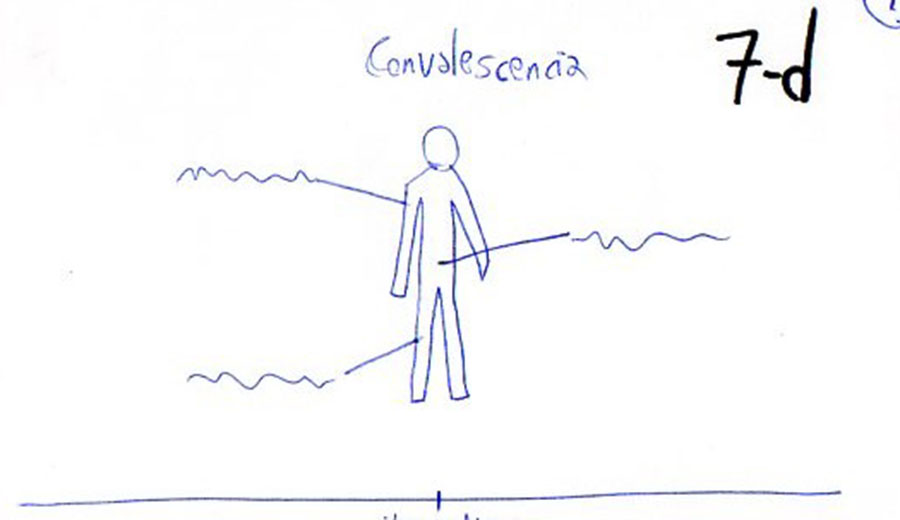 Convalescencia
7-d